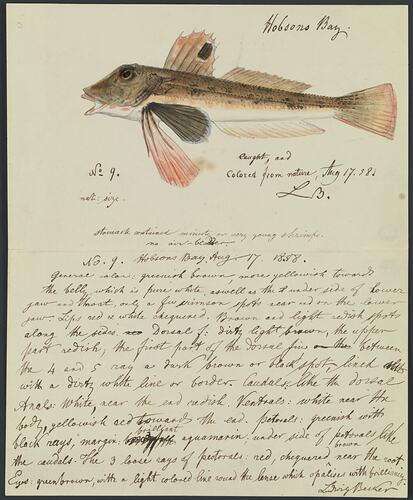 Hobsons Bay.
No 9.
nat. size.
Caught, and
Colored from nature, Aug 17. 58.
L B.
stomach contained minute or very young shrimps.
no air-bladder.
No. 9. Hobsons Bay, Aug 17. 1858.
General colour: greenish brown, more yellowish towards
the belly, which is pure white, as well as the under side of lower
jaw and throat, only a few crimson spots near and on the lower
jaw. Lips red & white chequered. Brown and light redish spots
along the sides. Dorsal f: dirty light brown, the upper
part redish, the first part of the dorsal fins between
the 4 and 5 ray a dark brown or black spot, linch
with a dirty white line or border. Caudal: like the dorsal
Anals: White, near the end redish. Ventrals: white near the
body, yellowish red toward the end. Pectorals: greenish with
brilliant
black rays, margin: aquamarin, under side of pectorals like
the caudals. The 3 loose rays of pectorals: red, chequered near the root.
Eyes: green brown, with a light colored line round the lense which opalises with brilliancy.
Ludwig Becker